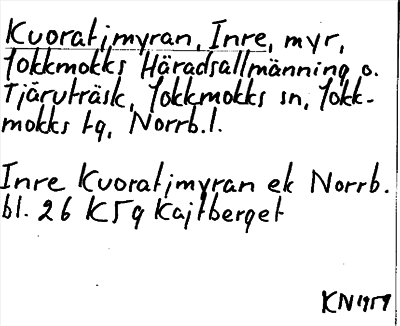 Kuoratjmyran, Inre, myr,
Jokkmokks Häradsallmänning o.
Tjäruträsk, Jokkmokks sn, Jokk-
mokks tg, Norrb.l.
Inre Kuoratjmyran ek Norrb.
bl. 26 K 5 g Kajtberget
KN 1959